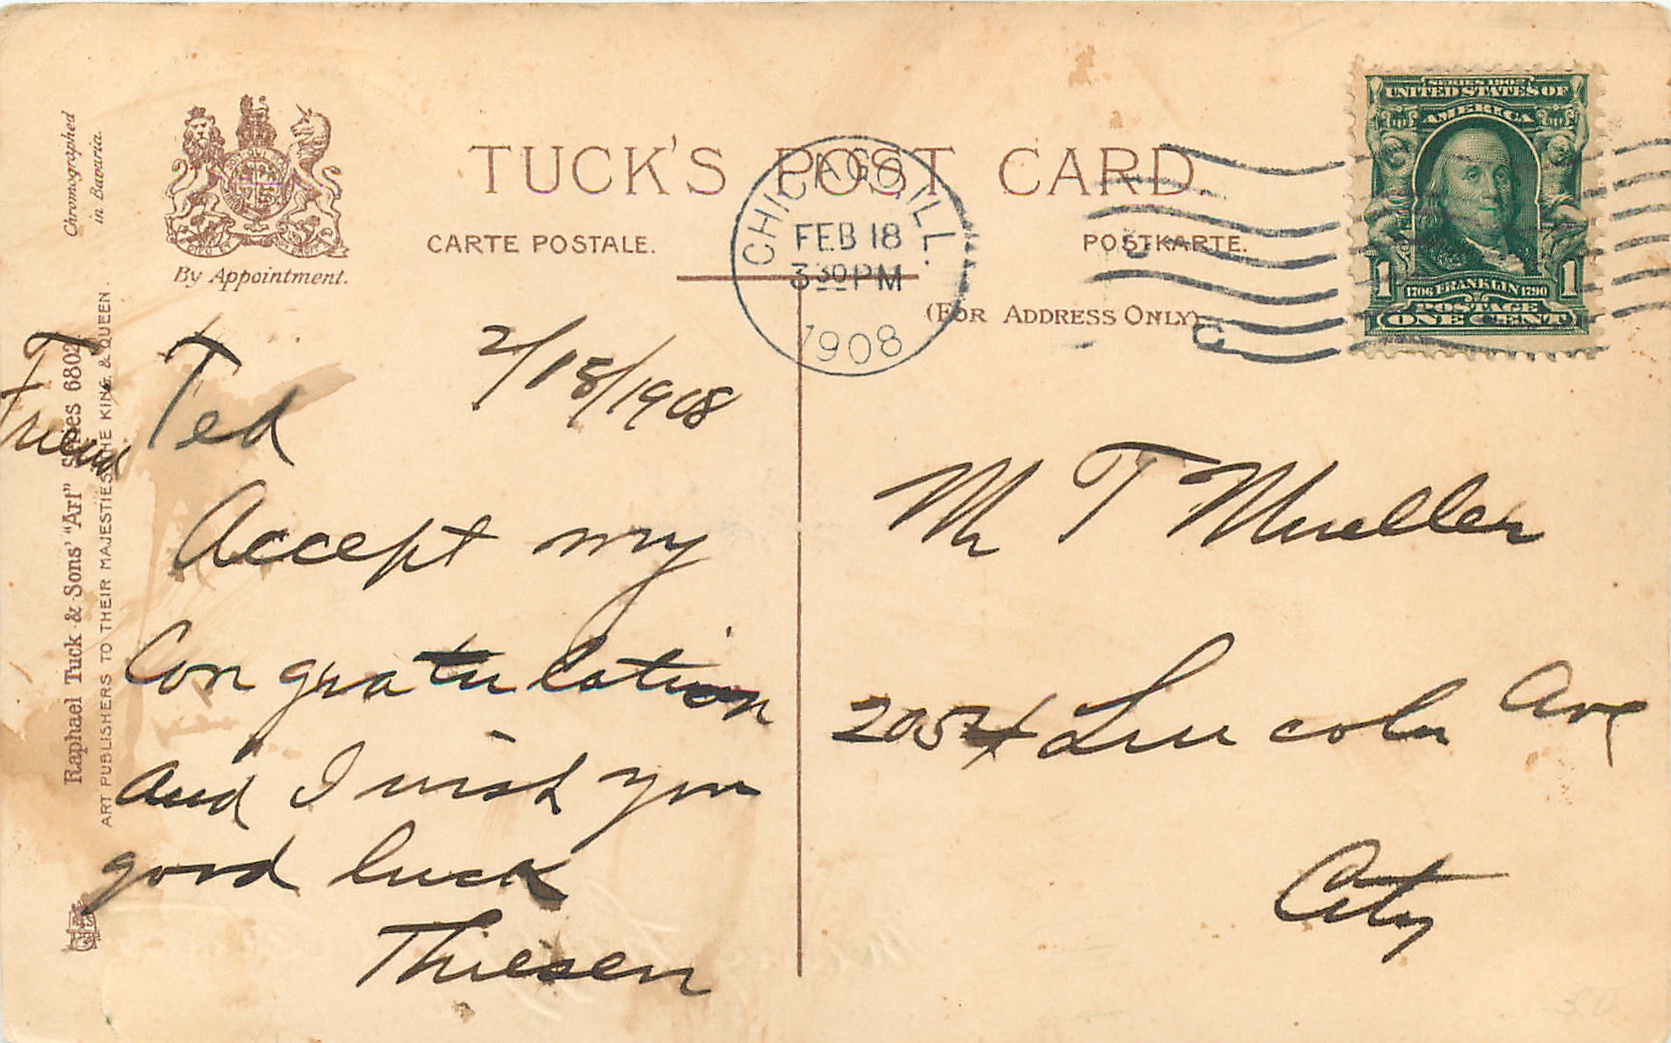 TUCK'S POST CARD
CARTE POSTALE.
POSTKARTE.
(FOR ADDRESS ONLY)
By Appointment.
Chromographed
in Bavaria.
Raphael Tuck & Sons' "Art" Series 6802
ART PUBLISHERS TO THEIR MAJESTIES THE KING & QUEEN.
CHICAGO, ILL.
FEB 18
3 30 PM
1908
SERIES 1902
UNITED STATES OF
AMERICA
1706 FRANKLIN 1790
1 1
POSTAGE
ONE CENT
2/18/1908
Friend Ted
Accept my
Congratulation
and I wish you
good luck
Thiesen
Mr T Mueller
2054 Lincoln Ave
City